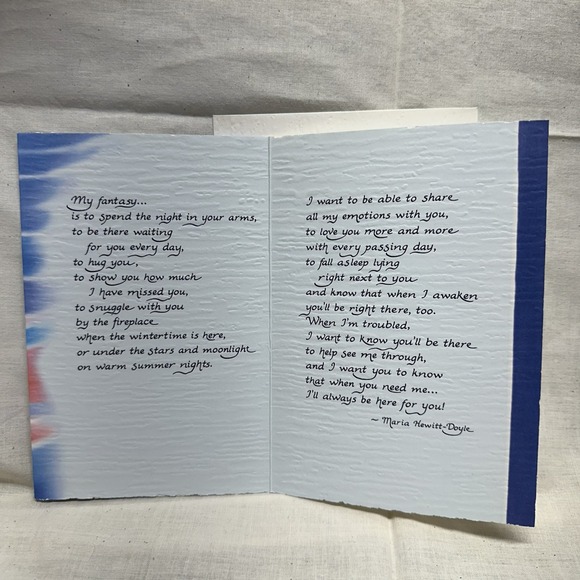 My fantasy...
is to spend the night in your arms,
to be there waiting
for you every day,
to hug you,
to show you how much
I have missed you,
to snuggle with you
by the fireplace
when the wintertime is here,
or under the stars and moonlight
on warm summer nights.
I want to be able to share
all my emotions with you,
to love you more and more
with every passing day,
to fall asleep lying
right next to you
and know that when I awaken
you'll be right there, too.
When I'm troubled,
I want to know you'll be there
to help see me through,
and I want you to know
that when you need me...
I'll always be here for you!
~ Maria Hewitt-Doyle